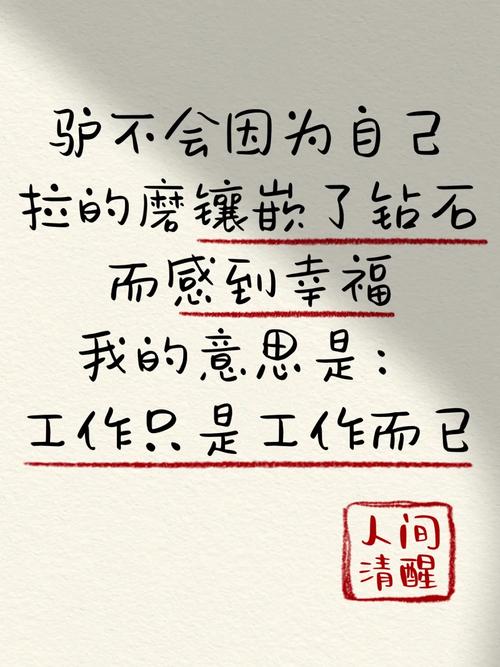 驴不会因为自己
拉的磨镶嵌了钻石
而感到幸福
我的意思是：
工作只是工作而已
人间
清醒